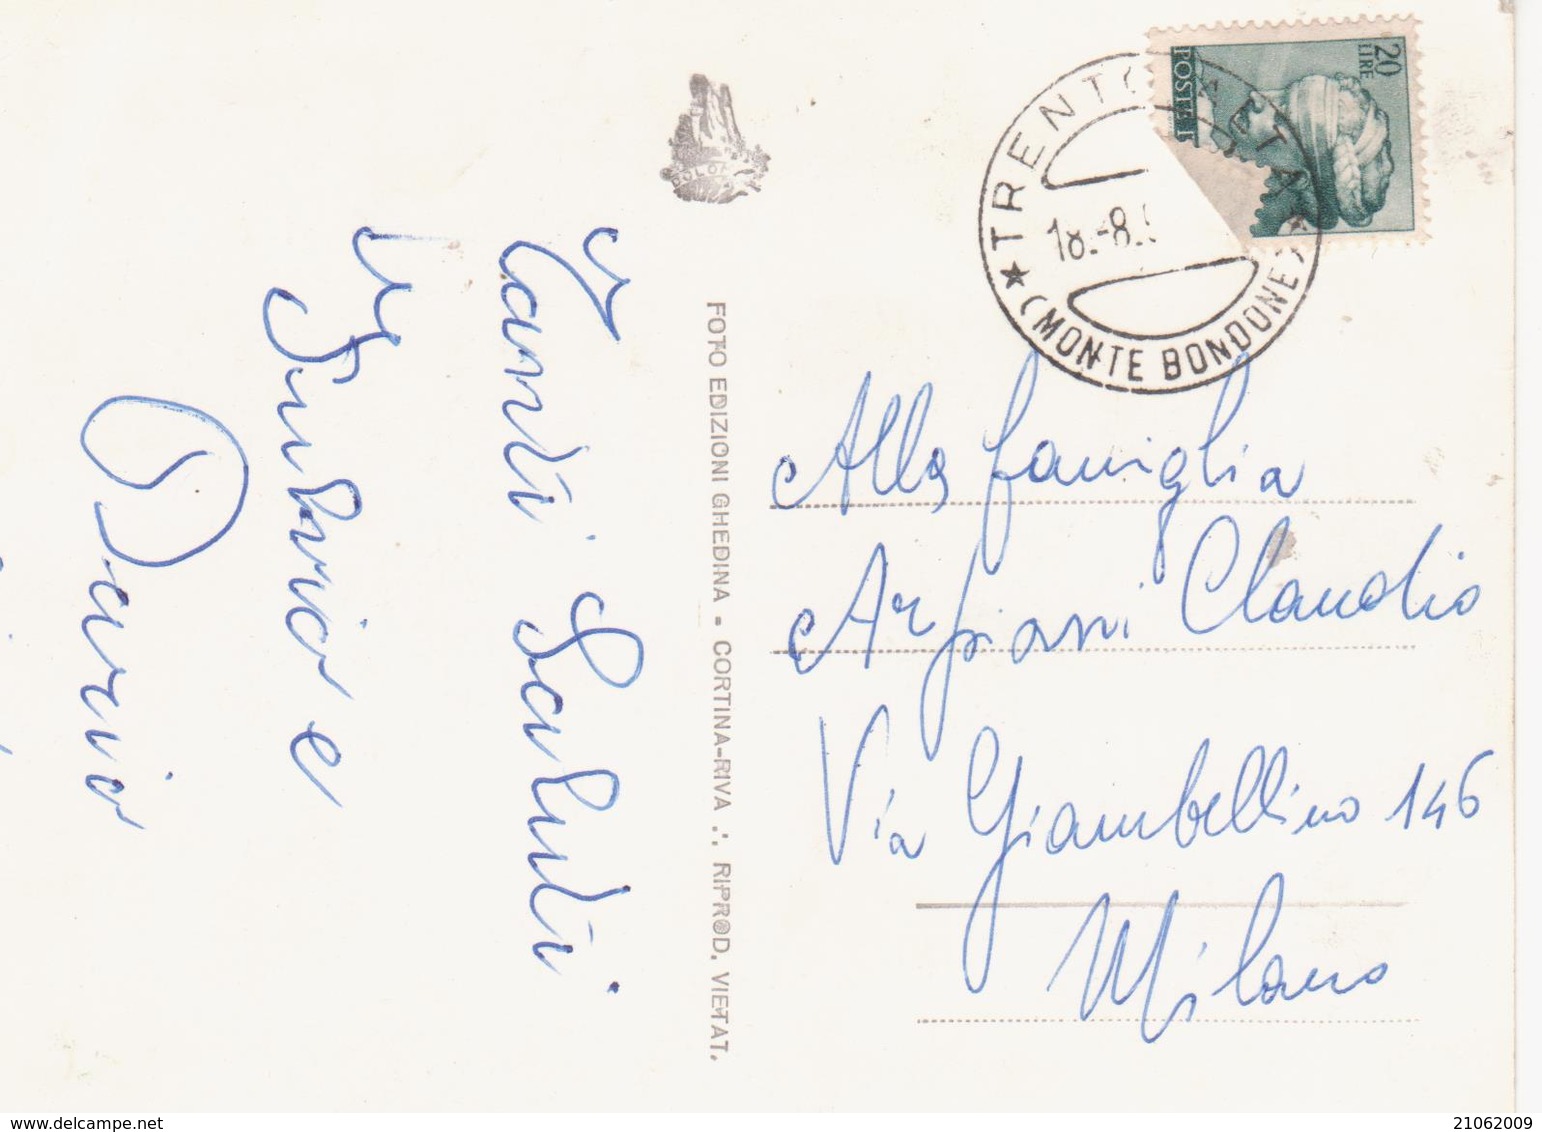 20
LIRE
POSTE I
TRENTO
TA
18.-8.
(MONTE BONDONE)
DOLO
Tanti Saluti
Silvio e
Dario
FOTO EDIZIONI GHEDINA - CORTINA-RIVA .·. RIPROD. VIETAT.
Alla famiglia
Claudio
Via Giambellino 146
Milano
delcampe.net
21062009